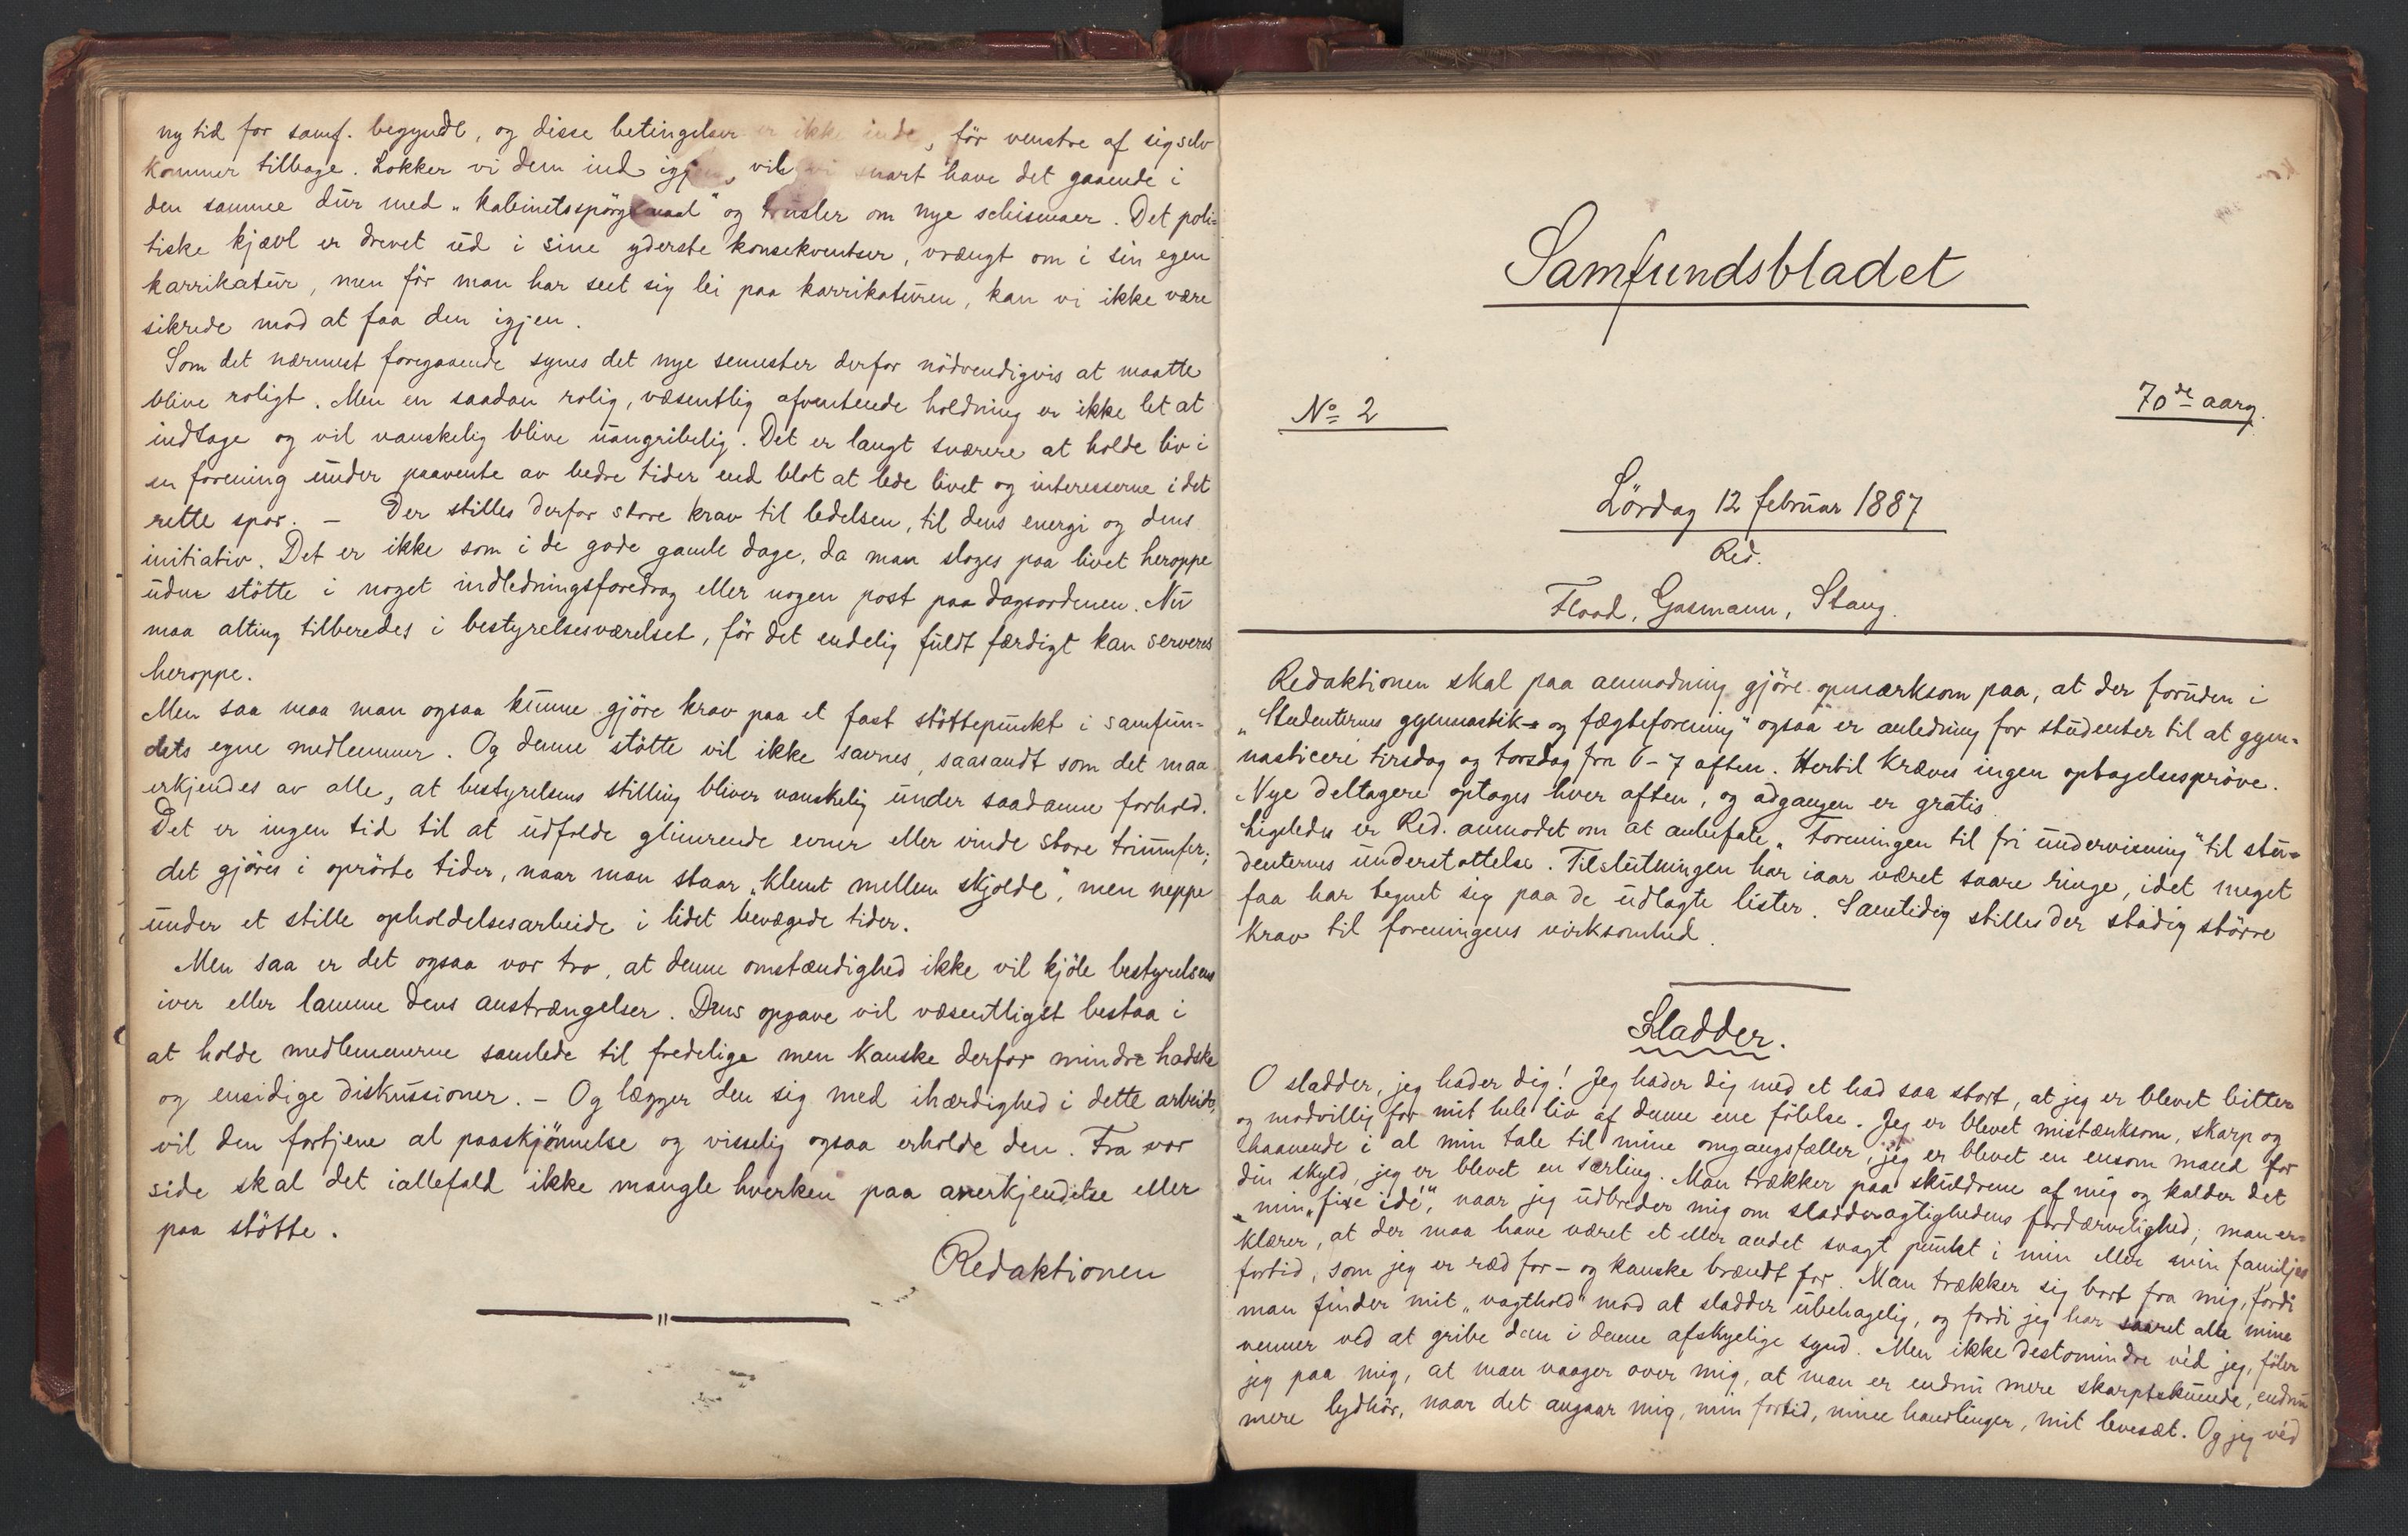 ny tid for samf. begyndt, og disse betingelser er ikke inde, før venstre af sig selv
kommer tilbage. Lokker vi dem ind igjen, vil vi snart have det gaaende i
den samme dur med „kabinetsspørgsmaal“ og trusler om nye schismaer. Det poli-
tiske kjævl er drevet ud i sine yderste konsekventser, vrængt om i sin egen
karrikatur, men før man har seet sig lei paa karrikaturen, kan vi ikke være
sikrede mod at faa den igjen.
Som det nærmest foregaaende synes det nye semester derfor nødvendigvis at maatte
blive roligt. Men en saadan rolig, væsentlig afventende holdning er ikke let at
indtage og vil vanskelig blive uangribelig. Det er langt sværere at holde liv i
en forening under paavente av bedre tider end blot at lede livet og interesserne i det
rette spor. – Der stilles derfor store krav til ledelsen, til dens energi og dens
initiativ. Det er ikke som i de gode gamle dage, da man sloges paa livet heroppe
uden støtte i noget indledningsforedrag eller nogen post paa dagsordenen. Nu
maa alting tilberedes i bestyrelsesværelset, før det endelig fuldt færdigt kan serveres
heroppe.
Men saa maa man ogsaa kunne gjøre krav paa et fast støttepunkt i samfun-
dets egne medlemmer. Og denne støtte vil ikke savnes, saasandt som det maa
erkjendes av alle, at bestyrelsens stilling bliver vanskelig under saadanne forhold.
Det er ingen tid til at udfolde glimrende evner eller vinde store triumfer;
det gjøres i oprørte tider, naar man staar „klemt mellem skjolde“, men neppe
under et stille opholdelsesarbeide i lidet bevægede tider.
Men saa er det ogsaa vor tro, at denne omstændighed ikke vil kjøle bestyrelsens
iver eller lamme dens anstrængelser. Dens opgave vil væsentligst bestaa i
at holde medlemmerne samlede til fredelige men kanske derfor mindre hadske
og ensidige diskussioner. – Og lægger den sig med ihærdighed i dette arbeide,
vil den fortjene al paaskjønnelse og visselig ogsaa erholde den. Fra vor
side skal det iallefald ikke mangle hverken paa anerkjendelse eller
paa støtte.
Redaktionen
Samfundsbladet
No 2
70de aarg.
Lørdag 12 februar 1887
Red.
Flood, Gasmann, Stang.
Redaktionen skal paa anmodning gjøre opmærksom paa, at der foruden i
„Studenternes gymnastik- og fægteforening“ ogsaa er anledning for studenter til at gym-
nasticere tirsdag og torsdag fra 6-7 aften. Hertil kræves ingen optagelsesprøve.
Nye deltagere optages hver aften, og adgangen er gratis.
Ligeledes er Red. anmodet om at anbefale „Foreningen til fri undervisning“ til stu-
denternes understøttelse. Tilslutningen har iaar været saare ringe, idet meget
faa har tegnet sig paa de udlagte lister. Samtidig stilles der stadig større
krav til foreningens virksomhed.
Sladder.
O sladder, jeg hader dig! Jeg hader dig med et had saa stort, at jeg er blevet bitter
og modvillig for mit hele liv af denne ene følelse. Jeg er blevet mistænksom, skarp og
haanende i al min tale til mine omgangsfæller, jeg er blevet en ensom mand for
din skyld, jeg er blevet en særling. Man trækker paa skuldrene af mig og kalder det
„min „fixe idé“, naar jeg udbreder mig om sladderagtighedens fordærvelighed; man er-
klærer, at der maa have været et eller andet svagt punkt i min eller min familjes
fortid, som jeg er ræd for – og kanske brændt for. Man trækker sig bort fra mig, fordi
man finder mit „vagthold“ mod at sladder ubehagelig, og fordi jeg har saaret alle mine
venner ved at gribe dem i denne afskyelige synd. Men ikke destomindre véd jeg, føler
jeg paa mig, at man vaager over mig, at man er endnu mere skarptskuende, endnu
mere lydhør, naar det angaar mig, min fortid, mine handlinger, mit levesæt. Og jeg véd